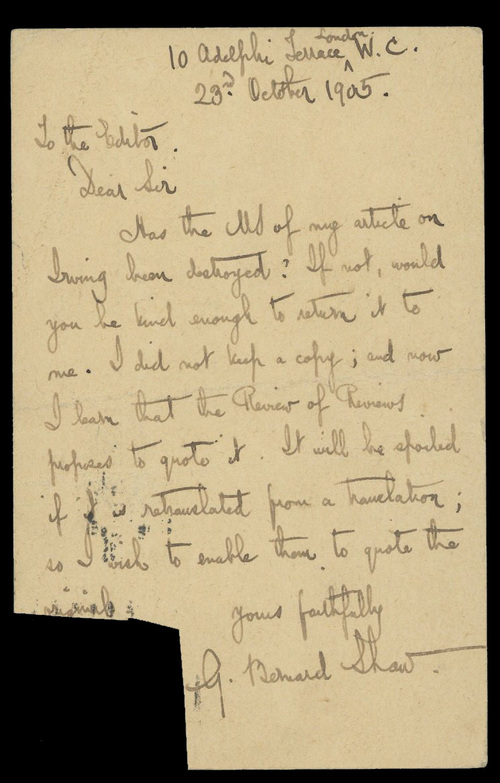 10 Adelphi Terrace London W.C.
23rd October 1905.
To the Editor.
Dear Sir
Has the MS of my article on
Irving been destroyed? If not, would
you be kind enough to return it to
me. I did not keep a copy; and now
I learn that the Review of Reviews
proposes to quote it. It will be spoiled
if retranslated from a translation;
so I wish to enable them to quote the
original.
yours faithfully
G. Bernard Shaw.